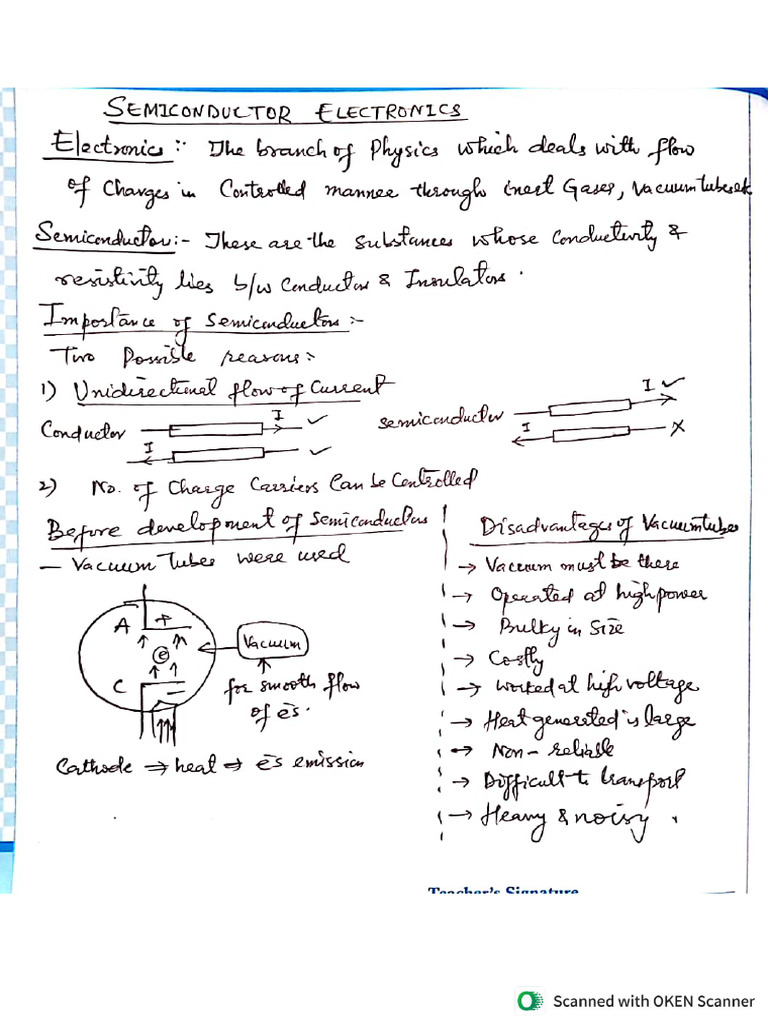 SEMICONDUCTOR ELECTRONICS
Electronics :- The branch of Physics which deals with flow
of Charges in Controlled manner through inert Gases, Vacuum tubes etc
Semiconductor :- These are the substances whose Conductivity &
resistivity lies b/w Conductor & Insulators.
Importance of Semiconductors :-
Two Possible reasons :-
1) Unidirectional flow of Current
Conductor I ✓
I ✓
Semiconductor I ✓
I X
2) No. of Charge Carriers Can be Controlled
Before development of Semiconductors
- Vacuum tubes were used
A +
e
C
Vacuum
for smooth flow
of e's.
Cathode ⇒ heat ⇒ e's emission
Disadvantages of Vacuum tubes
→ Vaccum must be there
→ Operated at high power
→ Bulky in Size
→ Costly
→ Worked at high voltage
→ Heat generated is large
→ Non-reliable
→ Difficult to transport
→ Heavy & noisy.
Teacher's Signature
Scanned with OKEN Scanner